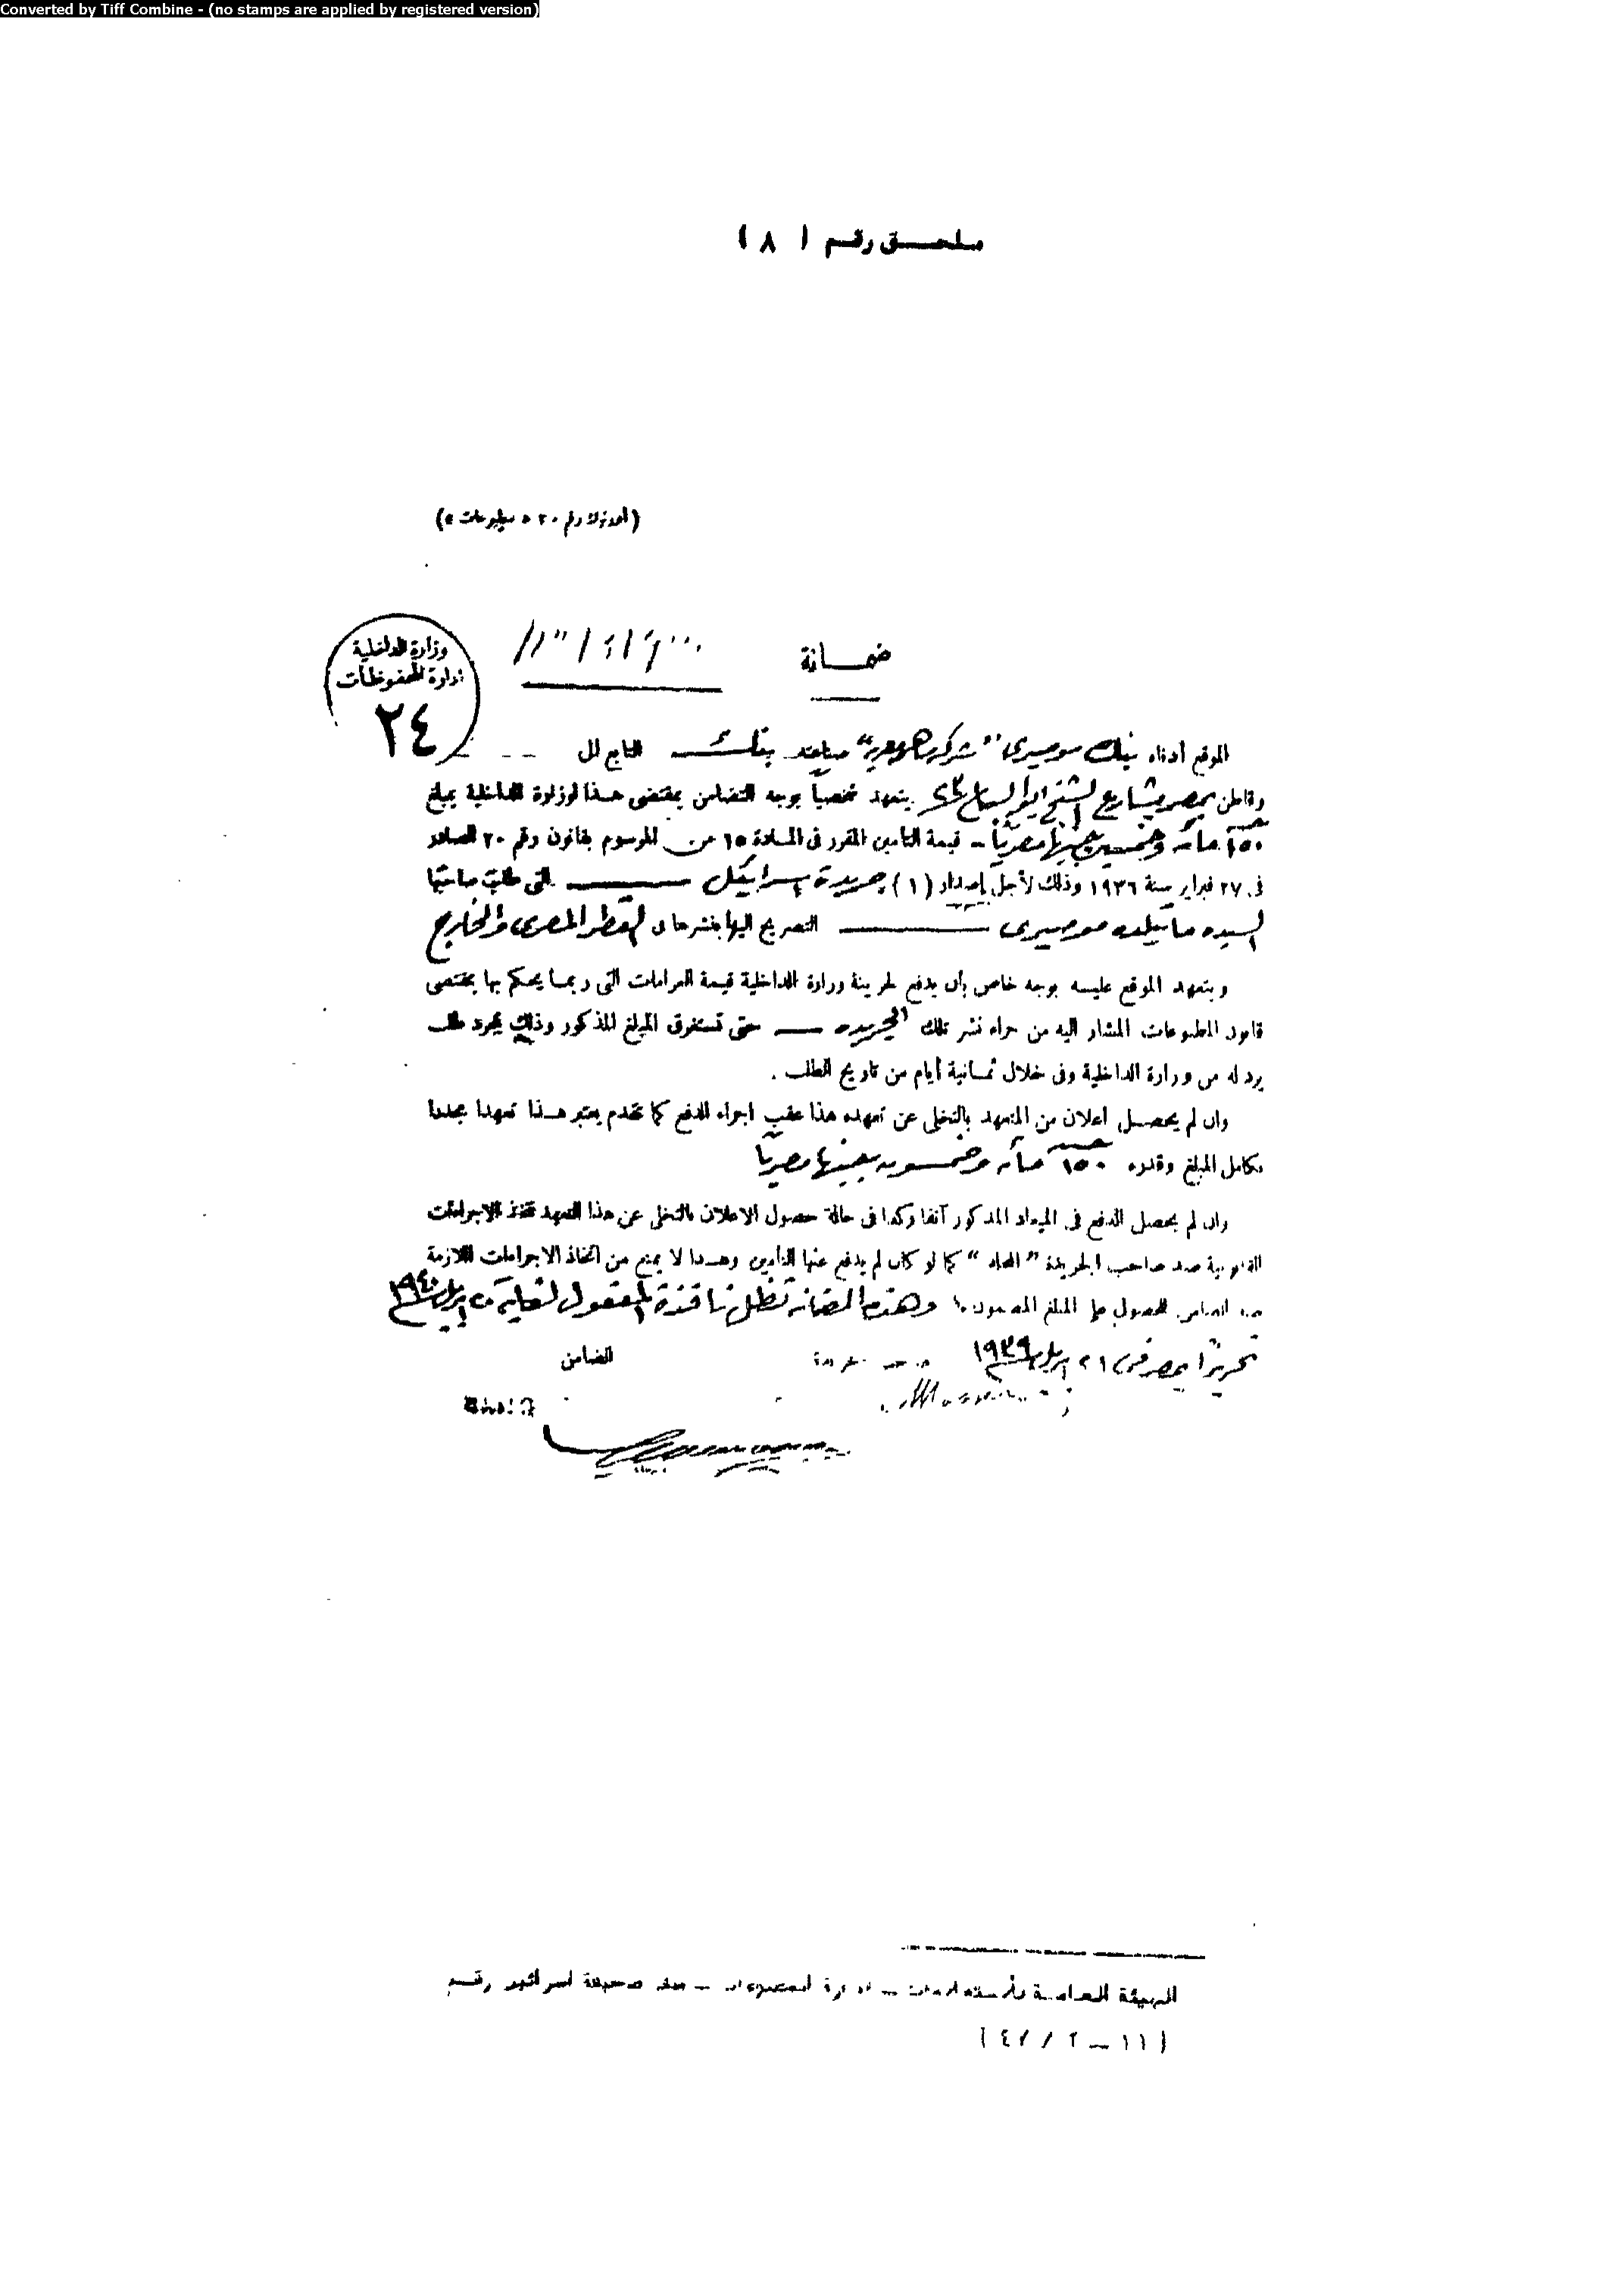 Converted by Tiff Combine - (no stamps are applied by registered version)
ملحق رقم ( ٨ )
ضمانة
وزارة الداخلية
إدارة المحفوظات
٢٤
الموقع أدناه بنك موصيرى "شركة مساهمة مصرية" بنك التابع لل
وقاطن بمصر بشارع الشيخ ابو السباع يتعهد شخصياً بوجه التضامن بمقتضى هذا لوزارة الداخلية بمبلغ
١٥٠ مائة وخمسين جنيها مصريا - قيمة التأمين المقرر فى المادة ١٥ من المرسوم بقانون رقم ٢٠ الصادر
فى ٢٧ فبراير سنة ١٩٣٦ وذلك لأجل إصدار (١) جريدة إسرائيل التى طلبت صاحبتها
السيده ماتيلده موصيرى التصريح اليها بنشرها فى القطر المصرى والخارج
ويتعهد الموقع عليه بوجه خاص بأن يدفع لخزينة وزارة الداخلية قيمة الغرامات التى ربما يحكم بها بمقتضى
قانون المطبوعات المشار اليه من جراء نشر تلك الجريده حتى تستغرق المبلغ المذكور وذلك بمجرد طلب
يرد له من وزارة الداخلية وفى خلال ثمانية أيام من تاريخ الطلب .
وان لم يحصل اعلان من المتعهد بالتخلى عن تعهده هذا عقب اجراء الدفع كما تقدم يعتبر هذا تعهدا مجددا
بكامل المبلغ وقدره ١٥٠ مائة وخمسون جنيها مصريا
وان لم يحصل الدفع فى الميعاد المذكور آنفا وكذا فى حالة حصول الاعلان بالتخلى عن هذا التعهد تتخذ الاجراءات
القانونية ضد صاحب الجريدة كما لو كان لم يدفع عنها التأمين وهذا لا يمنع من اتخاذ الاجراءات اللازمة
ضد الضامن للحصول على المبلغ المضمون وهذه الضمانة تظل نافذة المفعول لغاية ٢٠ ابريل ١٩٤٠
تحريرا بمصر فى ٢١ ابريل ١٩٣٩
الضامن
الهيئة العامة للاستعلامات - ادارة المطبوعات - ملف صحيفة اسرائيل رقم